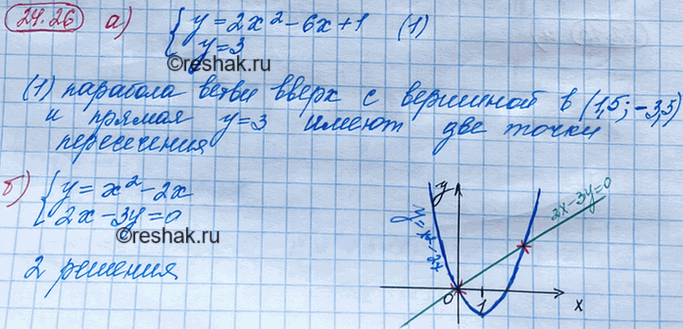 24.26 а) { y = 2x² - 6x + 1 (1)
y = 3
©reshak.ru
(1) парабола ветви вверх с вершиной в (1,5; -3,5)
и прямая y=3 имеют две точки
пересечения
б) { y = x² - 2x
2x - 3y = 0
©reshak.ru
2 решения
y
2x-3y=0
y=x²-2x
0
1
x